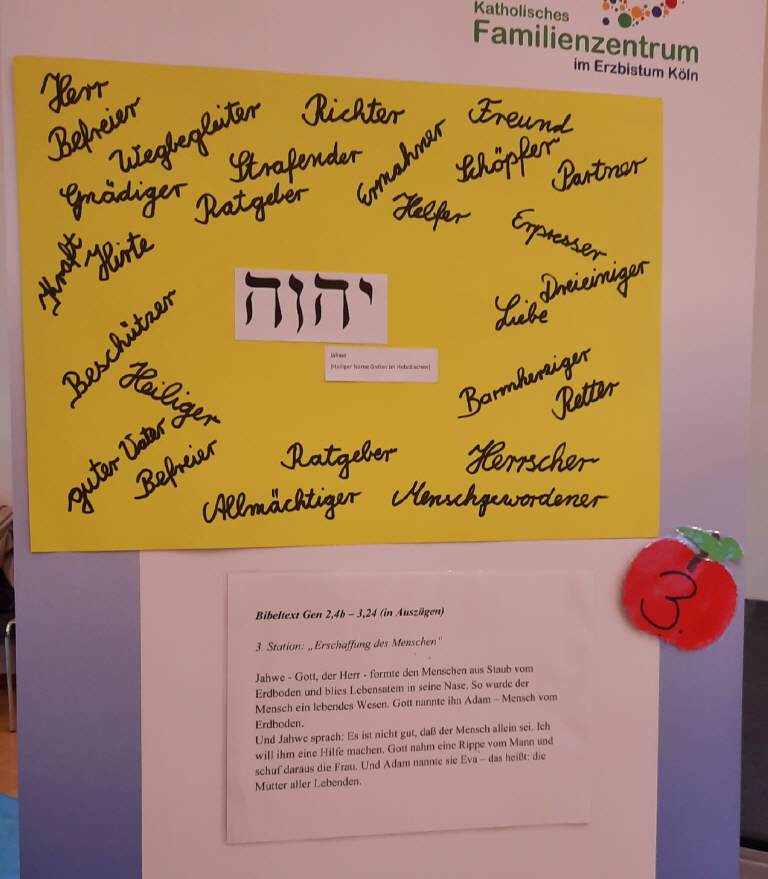 Katholisches
Familienzentrum
im Erzbistum Köln
Herr
Befreier
Wegbegleiter
Richter
Freund
Gnädiger
Strafender
Ermahner
Schöpfer
Partner
Ratgeber
Helfer
Kraft
Hirte
Erpresser
Dreieiniger
Liebe
יהוה
Jahwe
(Heiliger Name Gottes im Hebräischen)
Beschützer
Heiliger
Barmherziger
Retter
guter Vater
Befreier
Ratgeber
Herrscher
Allmächtiger
Menschgewordener
3.
Bibeltext Gen 2,4b – 3,24 (in Auszügen)
3. Station: „Erschaffung des Menschen“
Jahwe - Gott, der Herr - formte den Menschen aus Staub vom
Erdboden und blies Lebensatem in seine Nase. So wurde der
Mensch ein lebendes Wesen. Gott nannte ihn Adam – Mensch vom
Erdboden.
Und Jahwe sprach: Es ist nicht gut, daß der Mensch allein sei. Ich
will ihm eine Hilfe machen. Gott nahm eine Rippe vom Mann und
schuf daraus die Frau. Und Adam nannte sie Eva – das heißt: die
Mutter aller Lebenden.